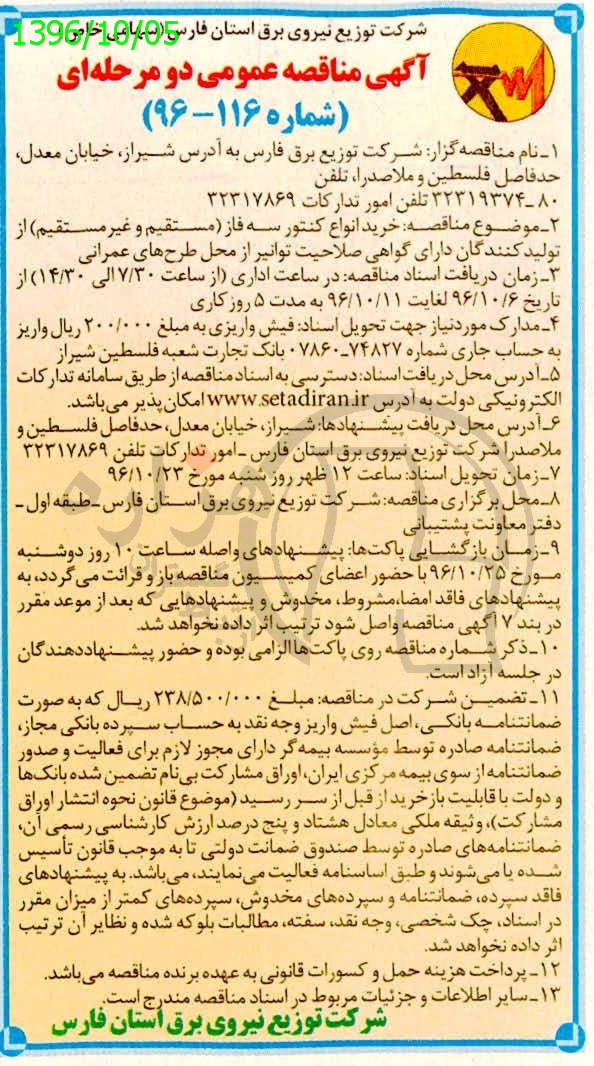 1396/10/05
شرکت توزیع نیروی برق استان فارس (سهامی خاص)
آگهی مناقصه عمومی دو مرحله‌ای
(شماره ۱۱۶-۹۶)
۱ـ نام مناقصه‌گزار: شرکت توزیع برق فارس به آدرس شیراز، خیابان معدل،
حدفاصل فلسطین و ملاصدرا، تلفن
۸۰ ـ ۳۲۳۱۹۳۷۴ تلفن امور تدارکات ۳۲۳۱۷۸۶۹
۲ـ موضوع مناقصه: خرید انواع کنتور سه فاز (مستقیم و غیرمستقیم) از
تولیدکنندگان دارای گواهی صلاحیت توانیر از محل طرح‌های عمرانی
۳ـ زمان دریافت اسناد مناقصه: در ساعت اداری (از ساعت ۷/۳۰ الی ۱۴/۳۰) از
تاریخ ۹۶/۱۰/۶ لغایت ۹۶/۱۰/۱۱ به مدت ۵ روز کاری
۴ـ مدارک موردنیاز جهت تحویل اسناد: فیش واریزی به مبلغ ۲۰۰/۰۰۰ ریال واریز
به حساب جاری شماره ۷۴۸۲۷ـ۰۷۸۶۰ بانک تجارت شعبه فلسطین شیراز
۵ـ آدرس محل دریافت اسناد: دسترسی به اسناد مناقصه از طریق سامانه تدارکات
الکترونیکی دولت به آدرس www.setadiran.ir امکان‌پذیر می‌باشد.
۶ـ آدرس محل دریافت پیشنهادها: شیراز، خیابان معدل، حدفاصل فلسطین و
ملاصدرا شرکت توزیع نیروی برق استان فارس ـ امور تدارکات تلفن ۳۲۳۱۷۸۶۹
۷ـ زمان تحویل اسناد: ساعت ۱۲ ظهر روز شنبه مورخ ۹۶/۱۰/۲۳
۸ـ محل برگزاری مناقصه: شرکت توزیع نیروی برق استان فارس ـ طبقه اول ـ
دفتر معاونت پشتیبانی
۹ـ زمان بازگشایی پاکت‌ها: پیشنهادهای واصله ساعت ۱۰ روز دوشنبه
مورخ ۹۶/۱۰/۲۵ با حضور اعضای کمیسیون مناقصه باز و قرائت می‌گردد، به
پیشنهادهای فاقد امضا، مشروط، مخدوش و پیشنهادهایی که بعد از موعد مقرر
در بند ۷ آگهی مناقصه واصل شود ترتیب اثر داده نخواهد شد.
۱۰ـ ذکر شماره مناقصه روی پاکت‌ها الزامی بوده و حضور پیشنهاددهندگان
در جلسه آزاد است.
۱۱ـ تضمین شرکت در مناقصه: مبلغ ۲۳۸/۵۰۰/۰۰۰ ریال که به صورت
ضمانتنامه بانکی، اصل فیش واریز وجه نقد به حساب سپرده بانکی مجاز،
ضمانتنامه صادره توسط مؤسسه بیمه‌گر دارای مجوز لازم برای فعالیت و صدور
ضمانتنامه از سوی بیمه مرکزی ایران، اوراق مشارکت بی‌نام تضمین شده بانک‌ها
و دولت با قابلیت بازخرید از قبل از سر رسید (موضوع قانون نحوه انتشار اوراق
مشارکت)، وثیقه ملکی معادل هشتاد و پنج درصد ارزش کارشناسی رسمی آن،
ضمانتنامه‌های صادره توسط صندوق ضمانت دولتی تا به موجب قانون تأسیس
شده یا می‌شوند و طبق اساسنامه فعالیت می‌نمایند، می‌باشد. به پیشنهادهای
فاقد سپرده، ضمانتنامه و سپرده‌های مخدوش، سپرده‌های کمتر از میزان مقرر
در اسناد، چک شخصی، وجه نقد، سفته، مطالبات بلوکه شده و نظایر آن ترتیب
اثر داده نخواهد شد.
۱۲ـ پرداخت هزینه حمل و کسورات قانونی به عهده برنده مناقصه می‌باشد.
۱۳ـ سایر اطلاعات و جزئیات مربوط در اسناد مناقصه مندرج است.
شرکت توزیع نیروی برق استان فارس